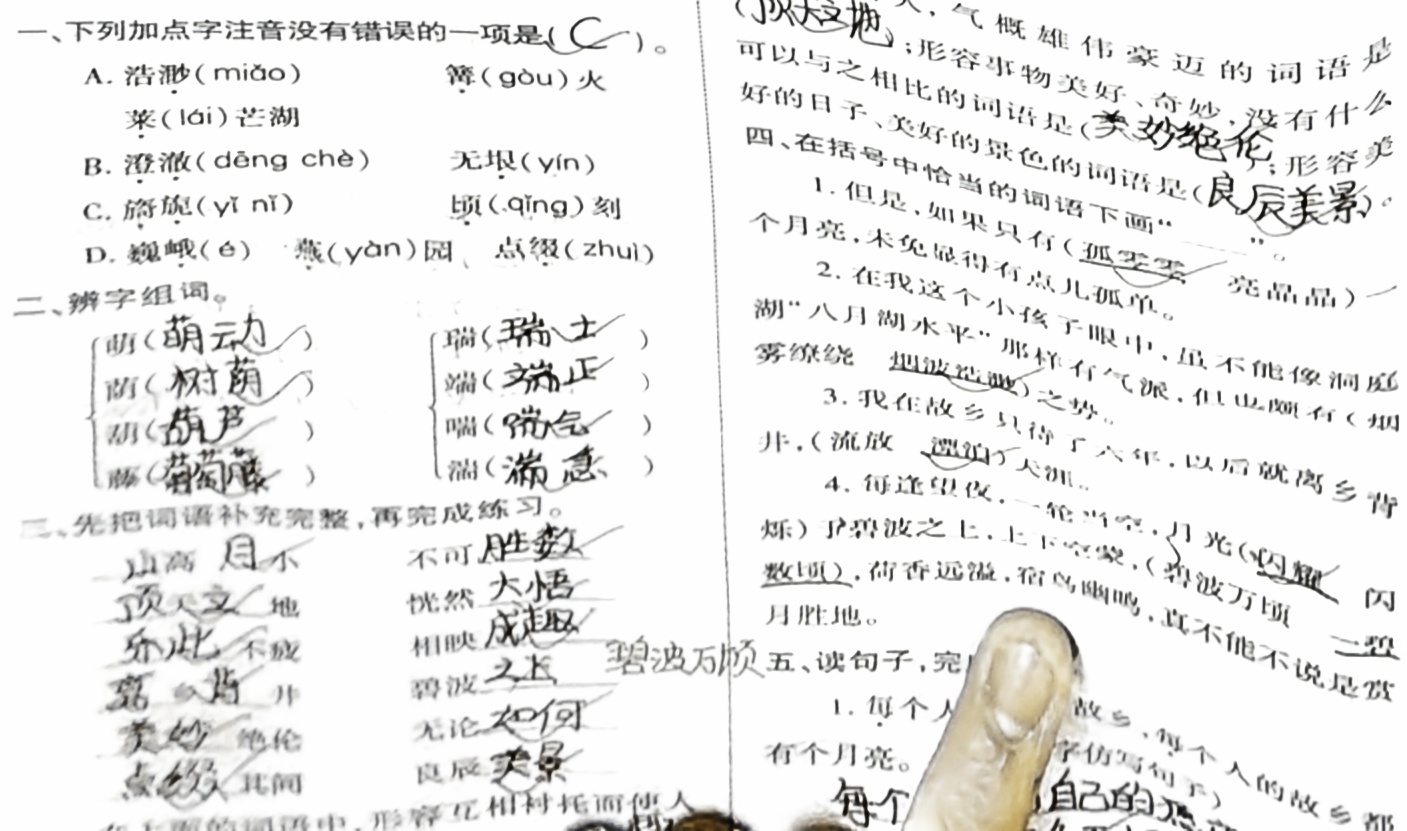 一、下列加点字注音没有错误的一项是( C )。
A. 浩渺(miǎo) 篝(gòu)火
菜(lái)芒湖
B. 澄澈(dēng chè) 无垠(yín)
C. 旖旎(yǐ nǐ) 顷(qǐng)刻
D. 巍峨(é) 燕(yàn)园 点缀(zhuì)
二、辨字组词。
萌(萌动) 瑞(瑞士)
荫(树荫) 端(端正)
葫(葫芦) 喘(喘气)
藤(葡萄藤) 湍(湍急)
三、先把词语补充完整,再完成练习。
山高月不 不可胜数
顶天立地 恍然大悟
乐此不疲 相映成趣
离乡背井 碧波之上 碧波万顷
美妙绝伦 无论如何
点缀其间 良辰美景
在上面的词语中,形容互相衬托而使人
(顶天立地);形容事物美好、奇妙,没有什么
气概雄伟豪迈的词语是
可以与之相比的词语是(美妙绝伦);形容美
好的日子、美好的景色的词语是(良辰美景)。
四、在括号中恰当的词语下画“ ”。
1. 但是,如果只有(孤零零 亮晶晶)一
个月亮,未免显得有点儿孤单。
2. 在我这个小孩子眼中,虽不能像洞庭
湖“八月湖水平”那样有气派,但也颇有(烟
雾缭绕 烟波浩渺)之势。
3. 我在故乡只待了六年,以后就离乡背
井,(流放 漂泊)天涯。
4. 每逢望夜,一轮当空,月光(闪耀 闪
烁)于碧波之上,上下空蒙,(碧波万顷 一碧
数顷),荷香远溢,宿鸟幽鸣,真不能不说是赏
月胜地。
五、读句子,完
1. 每个人 故乡,每个人的故乡都
有个月亮。 字仿写句子)
每个 自己的